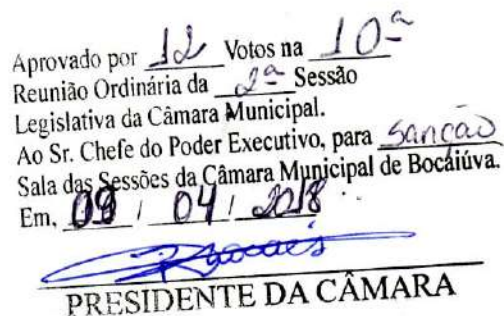 Aprovado por 12 Votos na 10ª
Reunião Ordinária da 2ª Sessão
Legislativa da Câmara Municipal.
Ao Sr. Chefe do Poder Executivo, para sanção
Sala das Sessões da Câmara Municipal de Bocaiúva.
Em, 09 / 04 / 2018
PRESIDENTE DA CÂMARA